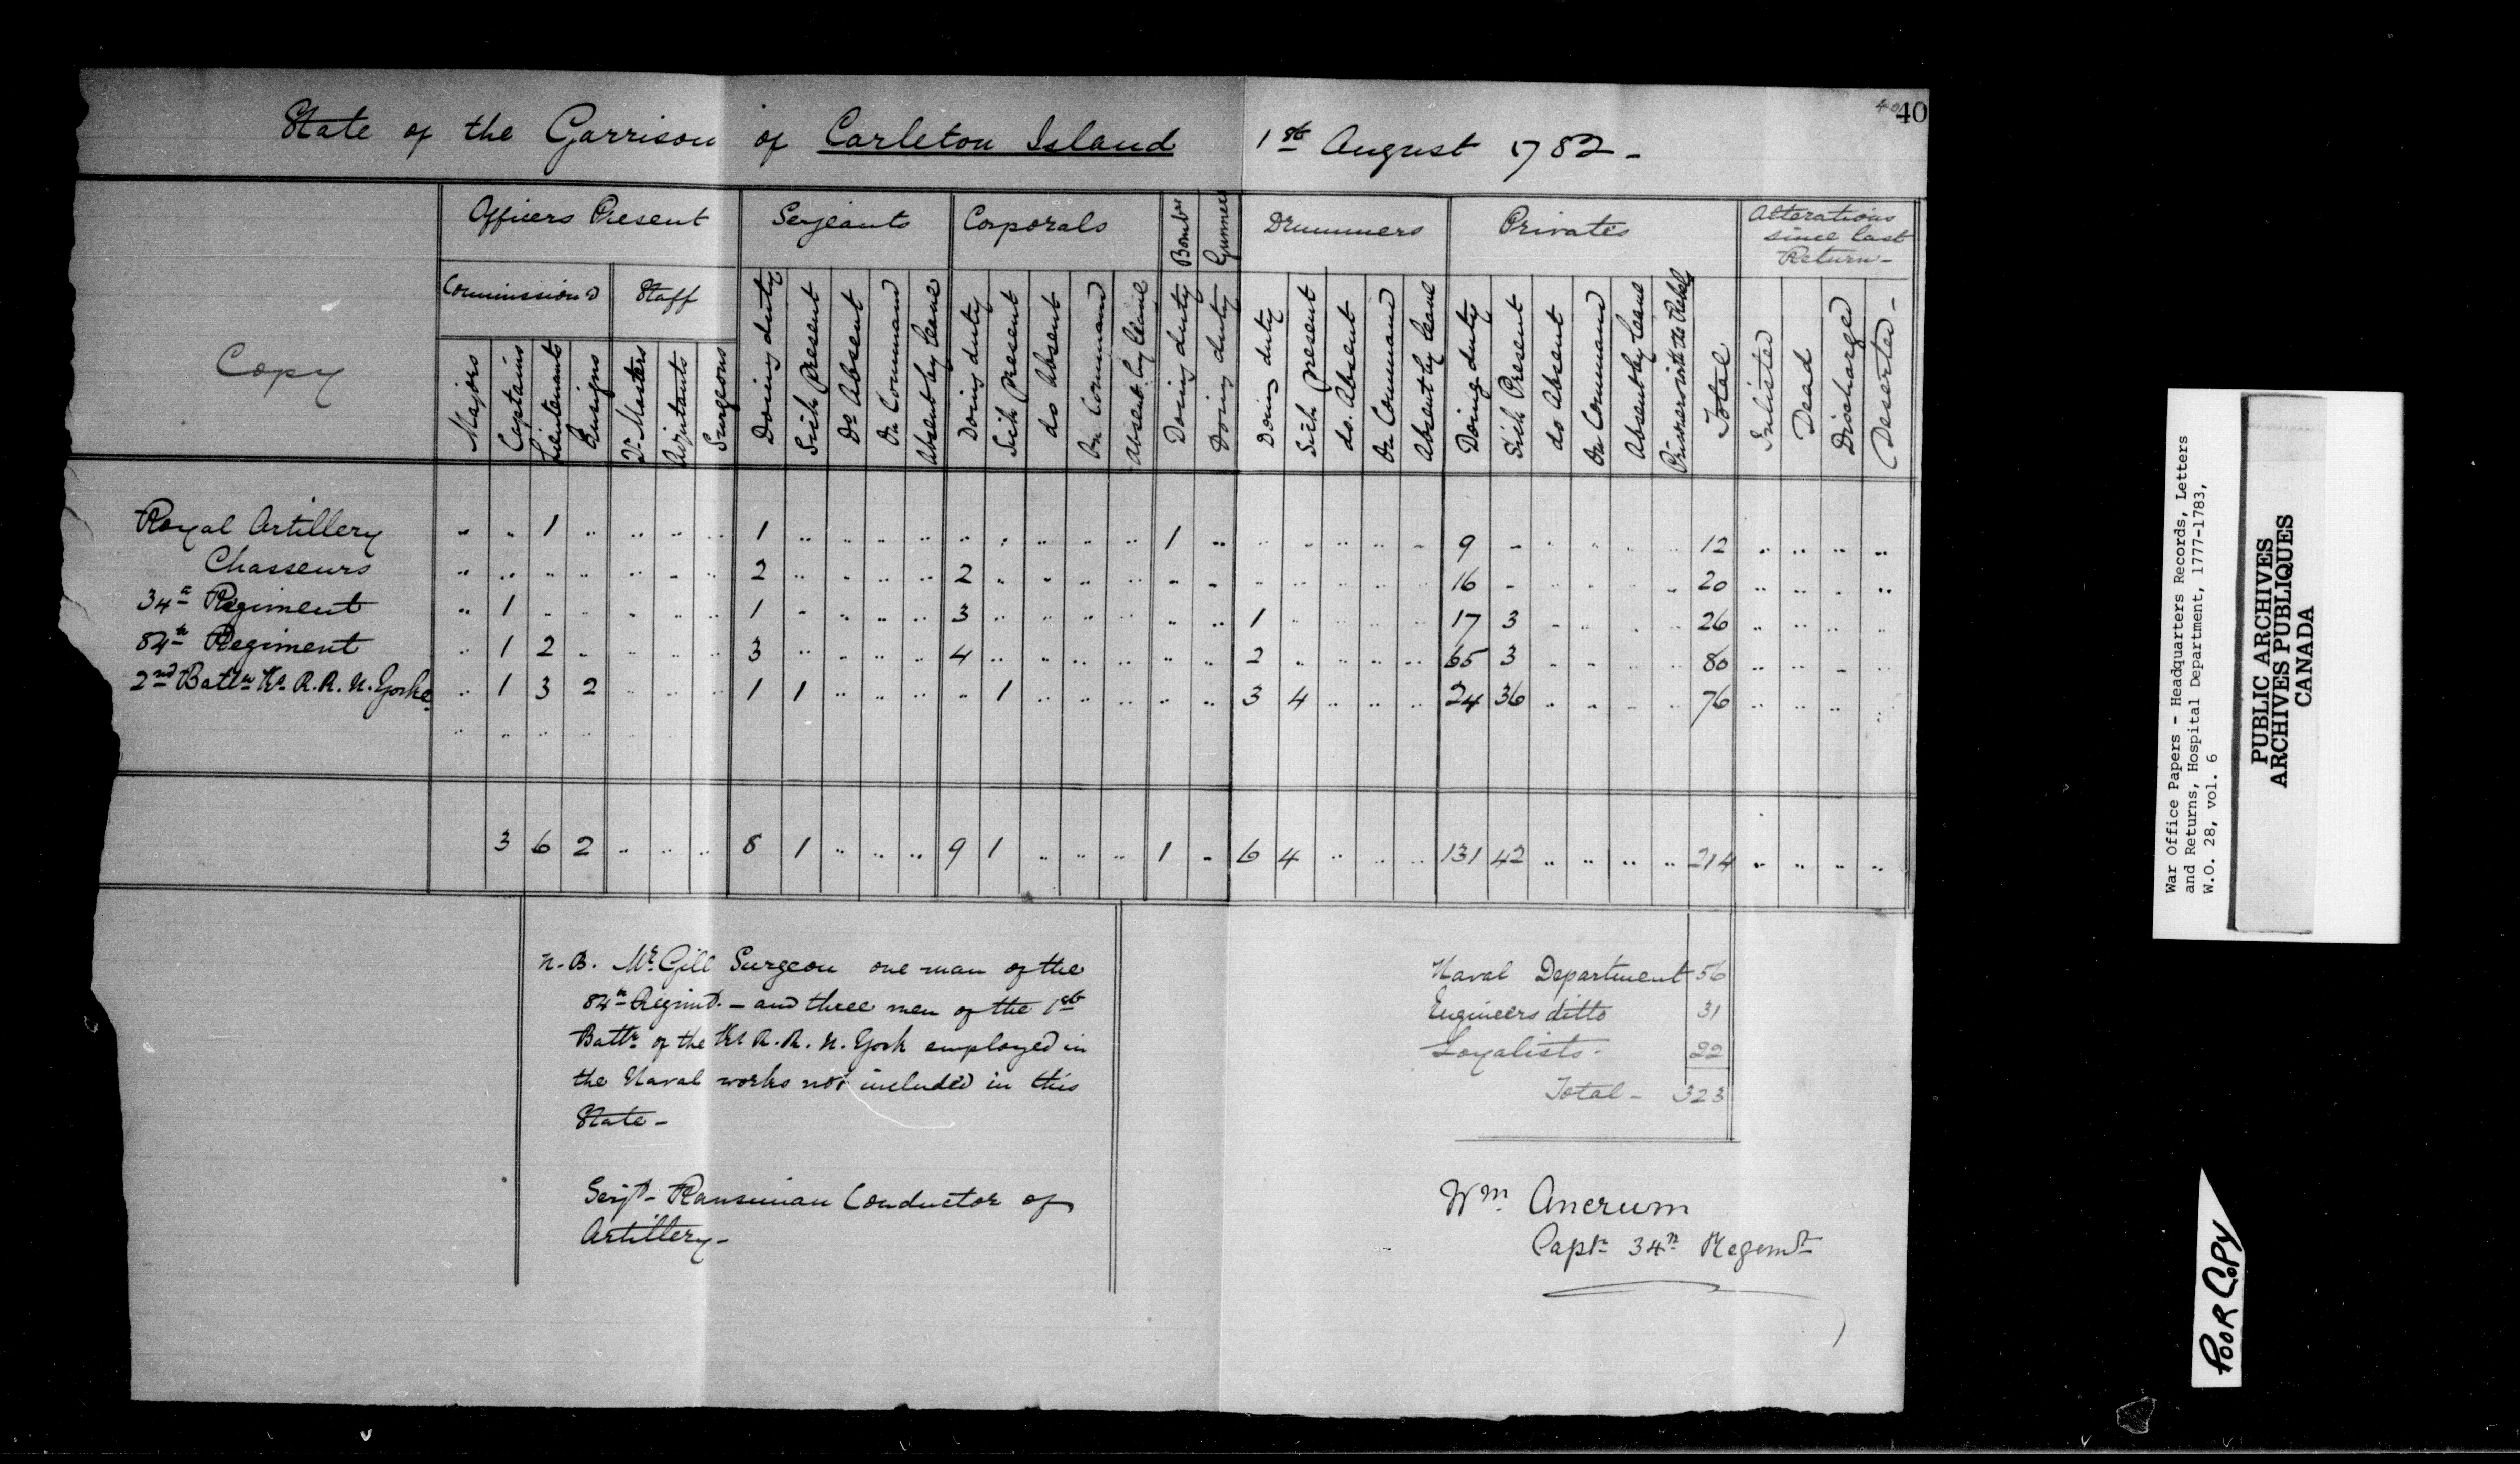 40 40
State of the Garrison of Carleton Island 1st August 1782 -
Copy
Officers Present Serjeants Corporals Bombrs Gunners Drummers Privates Alterations since last Return -
Commissiond Staff
Majors Captains Lieutenants Ensigns Qr Masters Adjutants Surgeons Doing duty Sick Present Do Absent On Command Absent by leave Doing duty Sick Present do Absent On Command Absent by leave Doing duty Doing duty Doing duty Sick present do. Absent On Command Absent by leave Doing duty Sick Present do Absent On Command Absent by leave Prisoners with the Rebels Total Inlisted Dead Discharged Deserted -
Royal Artillery " " 1 " " " " 1 " " " " " " " " " 1 " " " " " " 9 " " " " " 12 " " " "
Chasseurs " " " " " " " 2 " " " " 2 " " " " " " " " " " " 16 " " " " " 20 " " " "
34th Regiment " 1 " " " " " 1 " " " " 3 " " " " " " 1 " " " " 17 3 " " " " 26 " " " "
84th Regiment " 1 2 " " " " 3 " " " " 4 " " " " " " 2 " " " " 65 3 " " " " 80 " " " "
2nd Battn Ks R. R. N. Yorke " 1 3 2 " " " 1 1 " " " " 1 " " " " " 3 4 " " " 24 36 " " " " 76 " " " "
" " " " "
3 6 2 " " " 8 1 " " " 9 1 " " " 1 " 6 4 " " " 131 42 " " " " 214 " " " "
N. B. Mr. Gill Surgeon one man of the
84th Regimt. - and three men of the 1st
Battn of the Ks R. R. N. York employed in
the Naval works not included in this
State -
Serjt - Conductor of
Artillery -
Naval Department 56
Engineers ditto 31
Loyalists - 22
Total - 323
Wm Ancrum
Captn 34th Regemt
War Office Papers - Headquarters Records, Letters
and Returns, Hospital Department, 1777-1783,
W.O. 28, vol. 6
PUBLIC ARCHIVES
ARCHIVES PUBLIQUES
CANADA
POOR COPY